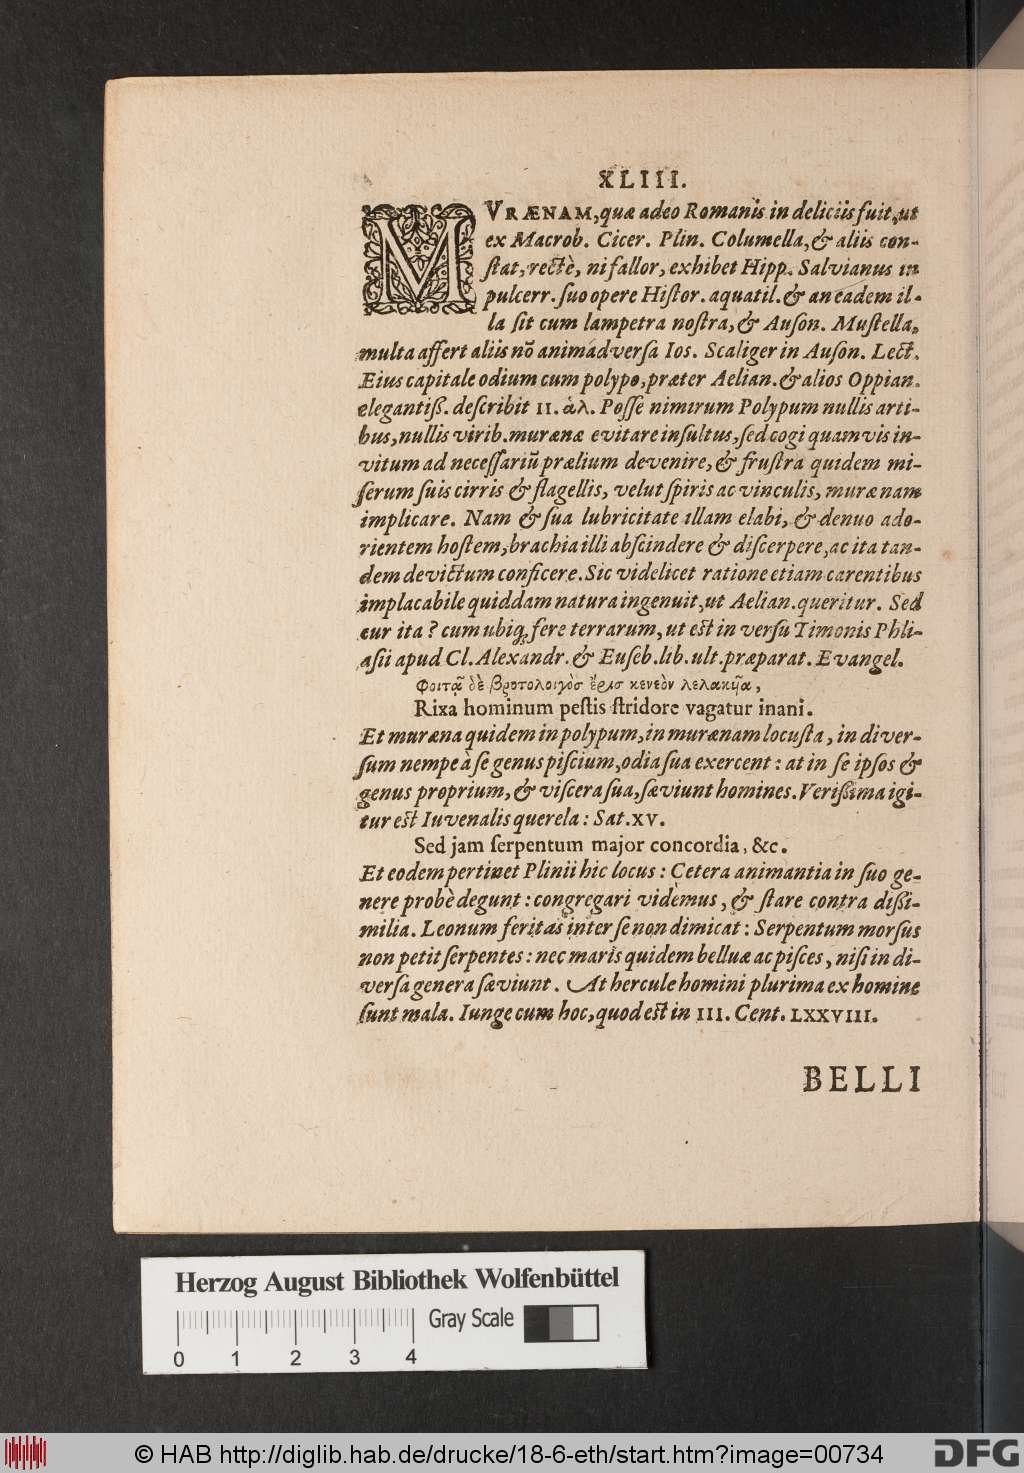 XLIII.
MVRÆNAM, quæ adeo Romanis in deliciis fuit, ut
ex Macrob. Cicer. Plin. Columella, & aliis con-
ſtat, rectè, ni fallor, exhibet Hipp. Salvianus in
pulcerr. ſuo opere Hiſtor. aquatil. & an eadem il-
la ſit cum lampetra noſtra, & Auſon. Muſtella,
multa affert aliis nō animadverſa Ios. Scaliger in Auſon. Lect.
Eius capitale odium cum polypo, præter Aelian. & alios Oppian.
elegantiß. deſcribit II. ἁλ. Poſſe nimirum Polypum nullis arti-
bus, nullis virib. murænæ evitare inſultus, ſed cogi quamvis in-
vitum ad neceſſariū prælium devenire, & fruſtra quidem mi-
ſerum ſuis cirris & flagellis, velut ſpiris ac vinculis, murænam
implicare. Nam & ſua lubricitate illam elabi, & denuo ado-
rientem hoſtem, brachia illi abſcindere & diſcerpere, ac ita tan-
dem devictum conficere. Sic videlicet ratione etiam carentibus
implacabile quiddam natura ingenuit, ut Aelian. queritur. Sed
cur ita? cum ubiq; fere terrarum, ut eſt in verſu Timonis Phli-
aſii apud Cl. Alexandr. & Euſeb. lib. ult. præparat. Evangel.
Φοιτᾷ δὲ βροτολοιγὸς ἔρις κενεὸν λελακυῖα,
Rixa hominum peſtis ſtridore vagatur inani.
Et muræna quidem in polypum, in murænam locuſta, in diver-
ſum nempe à ſe genus piſcium, odia ſua exercent: at in ſe ipſos &
genus proprium, & viſcera ſua, ſæviunt homines. Verißima igi-
tur eſt Iuvenalis querela: Sat. XV.
Sed jam ſerpentum major concordia, &c.
Et eodem pertinet Plinii hic locus: Cetera animantia in ſuo ge-
nere probè degunt: congregari videmus, & ſtare contra dißi-
milia. Leonum feritas inter ſe non dimicat: Serpentum morſus
non petit ſerpentes: nec maris quidem belluæ ac piſces, niſi in di-
verſa genera ſæviunt. At hercule homini plurima ex homine
ſunt mala. Iunge cum hoc, quod eſt in III. Cent. LXXVIII.
BELLI
Herzog August Bibliothek Wolfenbüttel
Gray Scale
0 1 2 3 4
© HAB http://diglib.hab.de/drucke/18-6-eth/start.htm?image=00734
DFG